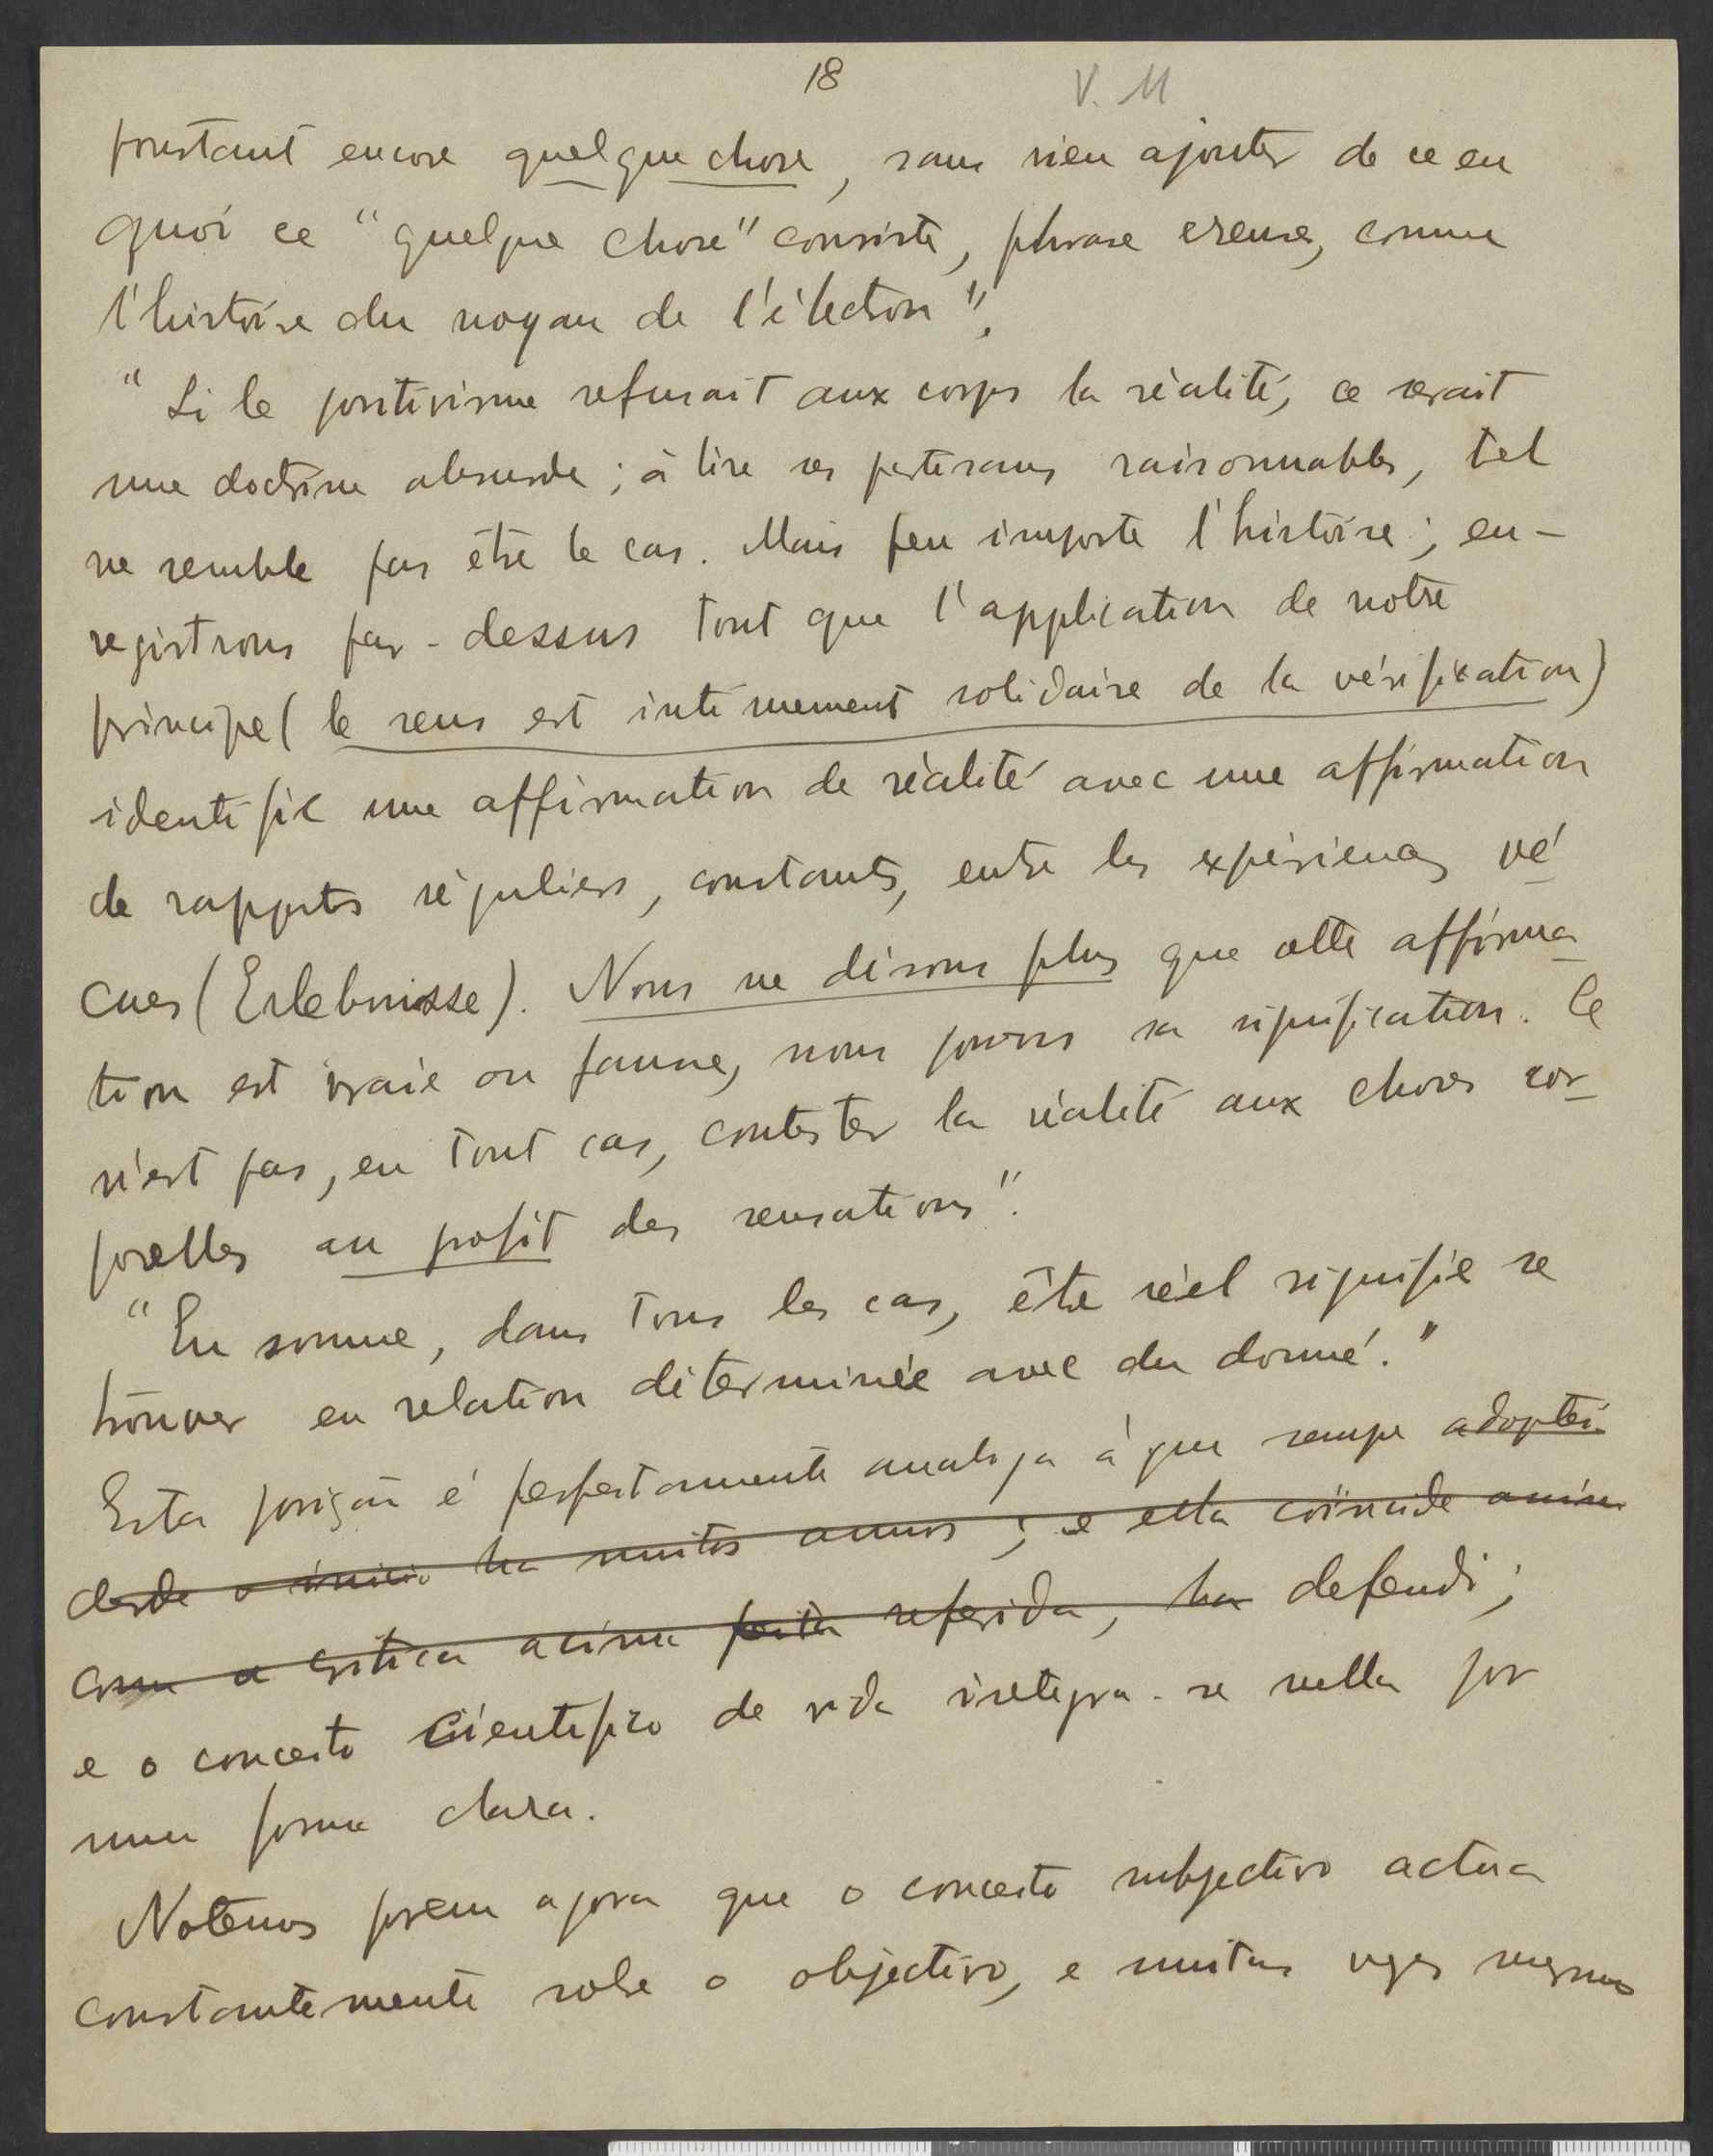 18 V. M
pourtant encore quelque chose, sans rien ajouter de ce en
quoi ce "quelque chose" consiste, phrase creuse, comme
l'histoire du noyau de l'électron".
"Si le positivisme refusait aux corps la réalité, ce serait
une doctrine absurde ; à lire ses partisans raisonnables, tel
ne semble pas être le cas. Mais peu importe l'histoire ; en-
registrons par-dessus tout que l'application de notre
principe (le sens est intimement solidaire de la vérification)
identifie une affirmation de réalité avec une affirmation
de rapports réguliers, constants, entre les expériences vé
cues (Erlebnisse). Nous ne disons plus que cette affirma
tion est vraie ou fausse, nous posons sa signification. Ce
n'est pas, en tout cas, contester la réalité aux choses cor
porelles au profit des sensations".
"En somme, dans tous les cas, être réel signifie se
trouver en relation déterminée avec du donné."
Esta posição é perfeitamente analoga á que sempre adoptei
desde o inicio ha muitos annos ; e ella coïncide assim
com a critica acima feita referida, ha defendi ;
e o conceito cientifico de vida integra-se nella por
uma forma clara.
Notemos porem agora que o conceito subjectivo actua
constantemente sobre o objectivo, e muitas vezes mesmo